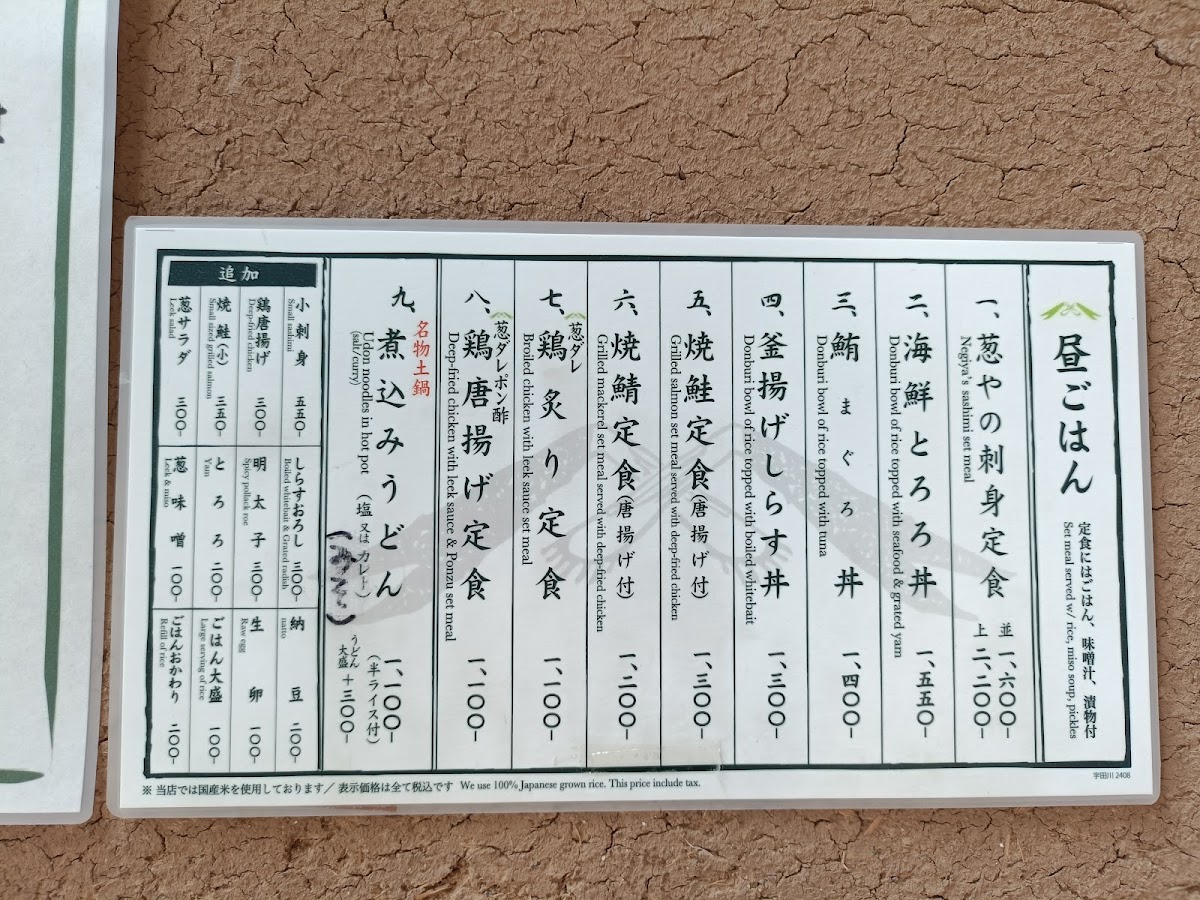 昼ごはん
定食にはごはん、味噌汁、漬物付
Set meal served w/ rice, miso soup, pickles
一、葱やの刺身定食
並 一、六〇〇-
上 二、二〇〇-
Negiya's sashimi set meal
二、海鮮とろろ丼 一、五五〇-
Donburi bowl of rice topped with seafood & grated yam
三、鮪まぐろ丼 一、四〇〇-
Donburi bowl of rice topped with tuna
四、釜揚げしらす丼 一、三〇〇-
Donburi bowl of rice topped with boiled whitebait
五、焼鮭定食(唐揚げ付) 一、三〇〇-
Grilled salmon set meal served with deep-fried chicken
六、焼鯖定食(唐揚げ付) 一、二〇〇-
Grilled mackerel set meal served with deep-fried chicken
葱ダレ
七、鶏炙り定食 一、一〇〇-
Broiled chicken with leek sauce set meal
葱ダレポン酢
八、鶏唐揚げ定食 一、一〇〇-
Deep-fried chicken with leek sauce & Ponzu set meal
名物土鍋
九、煮込みうどん 一、一〇〇-
(塩又はカレー)
(半ライス付)
Udon noodles in hot pot
(salt/curry)
(みそ)
うどん大盛 +三〇〇-
追加
小刺身 五五〇-
Small sashimi
鶏唐揚げ 三〇〇-
Deep-fried chicken
焼鮭(小) 三五〇-
Small sized grilled salmon
葱サラダ 三〇〇-
Leek salad
しらすおろし 三〇〇-
Boiled whitebait & Grated radish
明太子 三〇〇-
Spicy pollack roe
とろろ 二〇〇-
Yam
葱味噌 一〇〇-
Leek & miso
納豆 二〇〇-
natto
生卵 一〇〇-
Raw egg
ごはん大盛 一〇〇-
Large serving of rice
ごはんおかわり 二〇〇-
Refill of rice
※ 当店では国産米を使用しております/ 表示価格は全て税込です We use 100% Japanese grown rice. This price include tax.
宇田川 2408